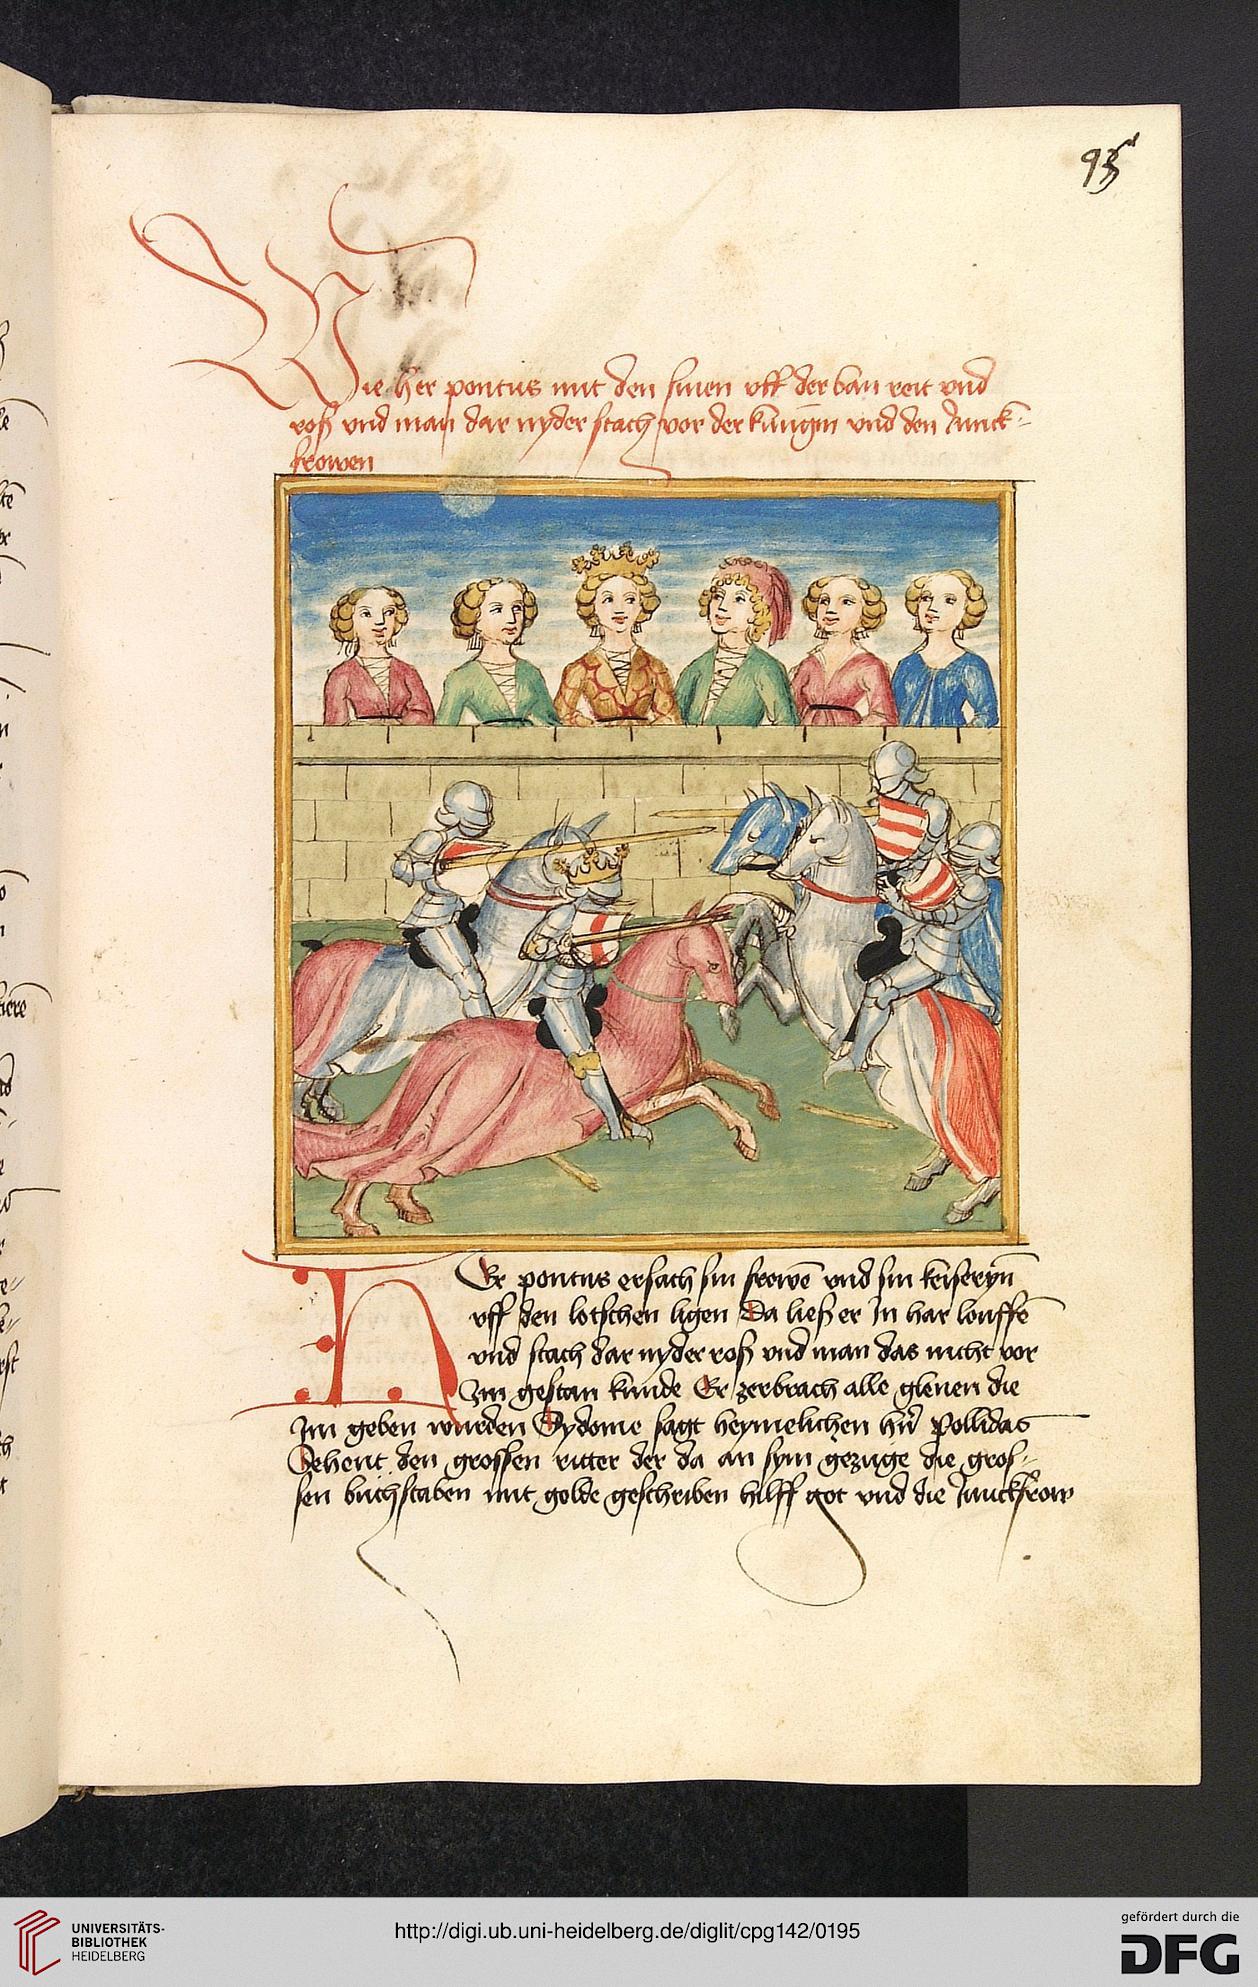 95
Wie her pontus mit den sinen vff der ban reit vnd
roß vnd man dar nyder stach vor der kungin vnd den Junck-
frowen
Her pontus ersach sin frowē vnd sin keiseryn̄
vff den lotschen ligen Da ließ er In har louffē
vnd stach dar nyder roß vnd man das nicht vor
Im gestan kunde Er zerbrach alle glenen die
Im geben wurden Sydonie sagt heymelichen hr̄ Pollidas
Sehent den grossen ritter der da an sym gezuge die gros-
sen buchstaben mit golde geschriben hilff got vnd die Junckfrow
UNIVERSITÄTS-
BIBLIOTHEK
HEIDELBERG
http://digi.ub.uni-heidelberg.de/diglit/cpg142/0195
gefördert durch die
DFG